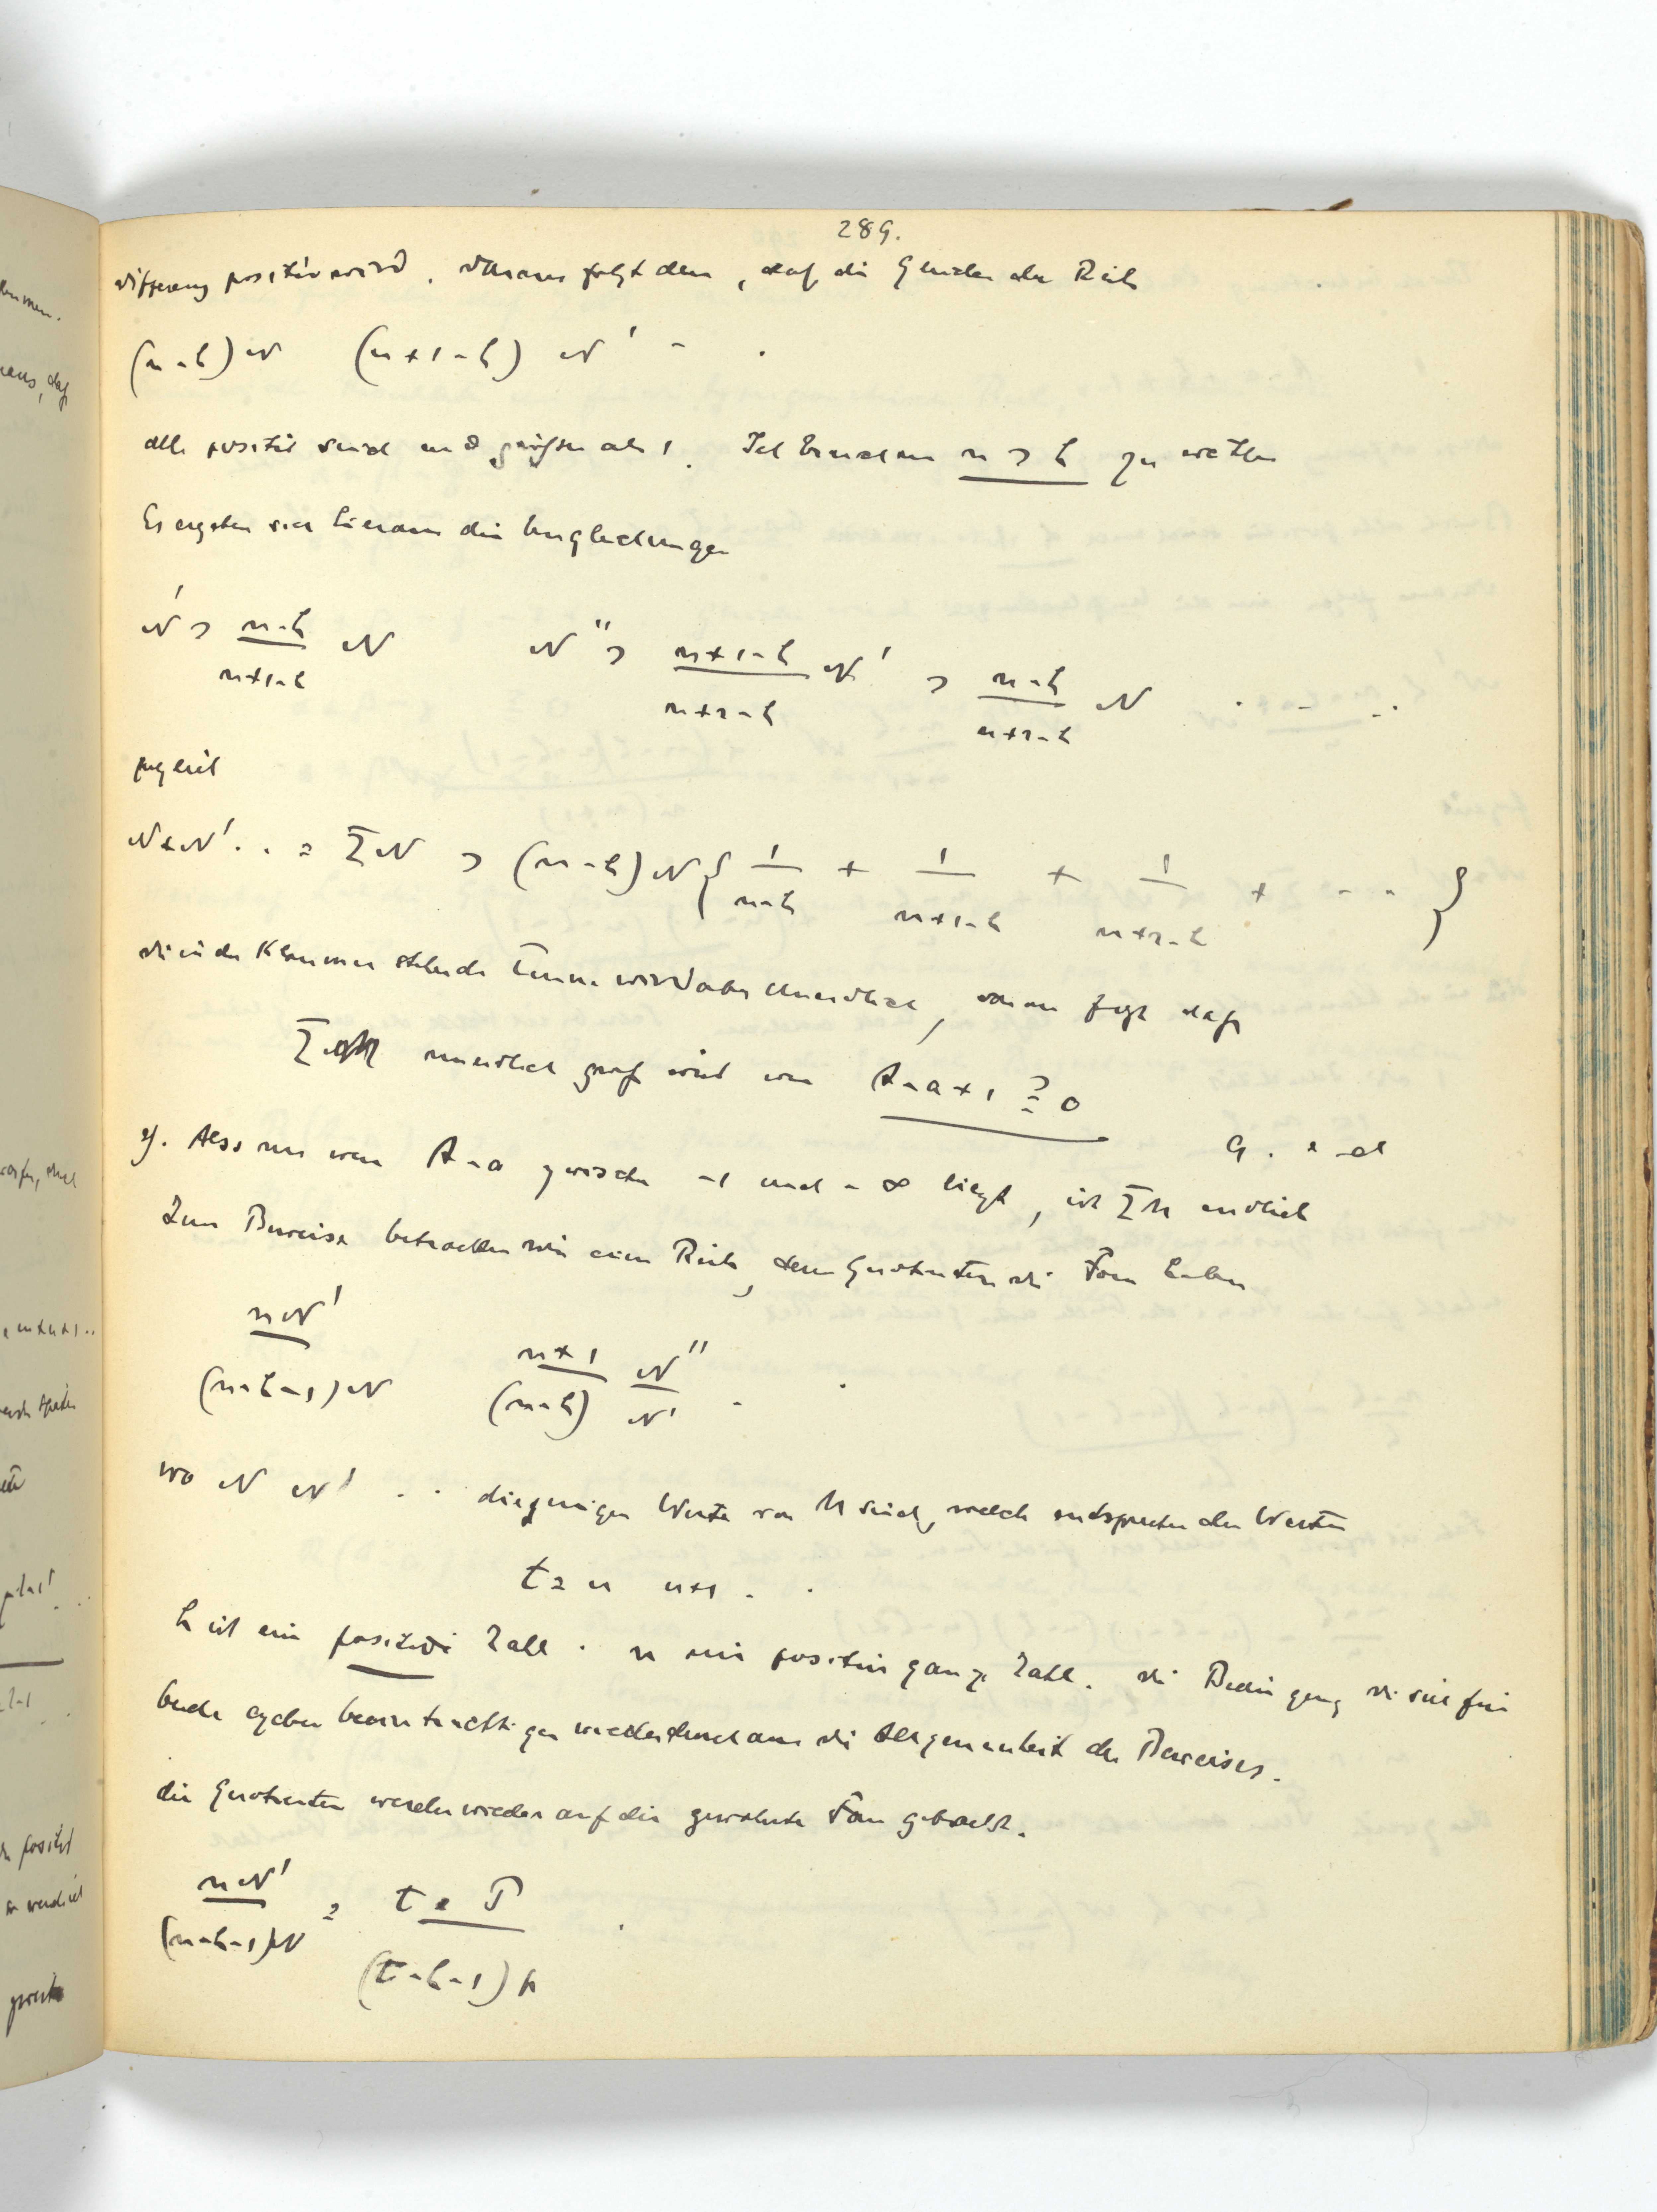 289.
Differenz positiv wird. Daraus folgt denn, daß die Glieder der Reihe
(n-h)N (n+1-h) N' - .
alle positiv sind und größer als 1. Ich brauche nur n > h zu wählen
Es ergeben sich hieraus die Ungleichungen
N' > \frac{n-h}{n+1-h} N N'' > \frac{n+1-h}{n+2-h} N' > \frac{n-h}{n+2-h} N . - - .
folglich
N+N' . . = ΣN > (n-h)N { \frac{1}{n-h} + \frac{1}{n+1-h} + \frac{1}{n+2-h} + - - - }
die in der Klammer stehende Summe wird aber unendlich, daraus folgt daß
Σ unendlich groß wird wenn A-a+1 \geqq 0
q. e d
Also nun wenn A-a zwischen -1 und -∞ liegt, ist ΣM endlich
Zum Beweise betrachten wir eine Reihe, deren Quotienten die Form haben
\frac{nN'}{(n-h-1)N} \frac{n+1}{(n-h)} \frac{N''}{N'} - .
wo N N' . . diejenigen Werte von M sind, welche entsprechen den Werten
t = n n+1 - .
h ist eine positive Zahl . n eine positive ganze Zahl. die Bedingung die sich für
beide ergeben beeinträchtigen wieder durchaus die Allgemeinheit des Beweises.
die Quotienten werden wieder auf die gewohnte Form gebracht.
\frac{nN'}{(n-h-1)N} = \frac{t P}{(t-h-1)p} .